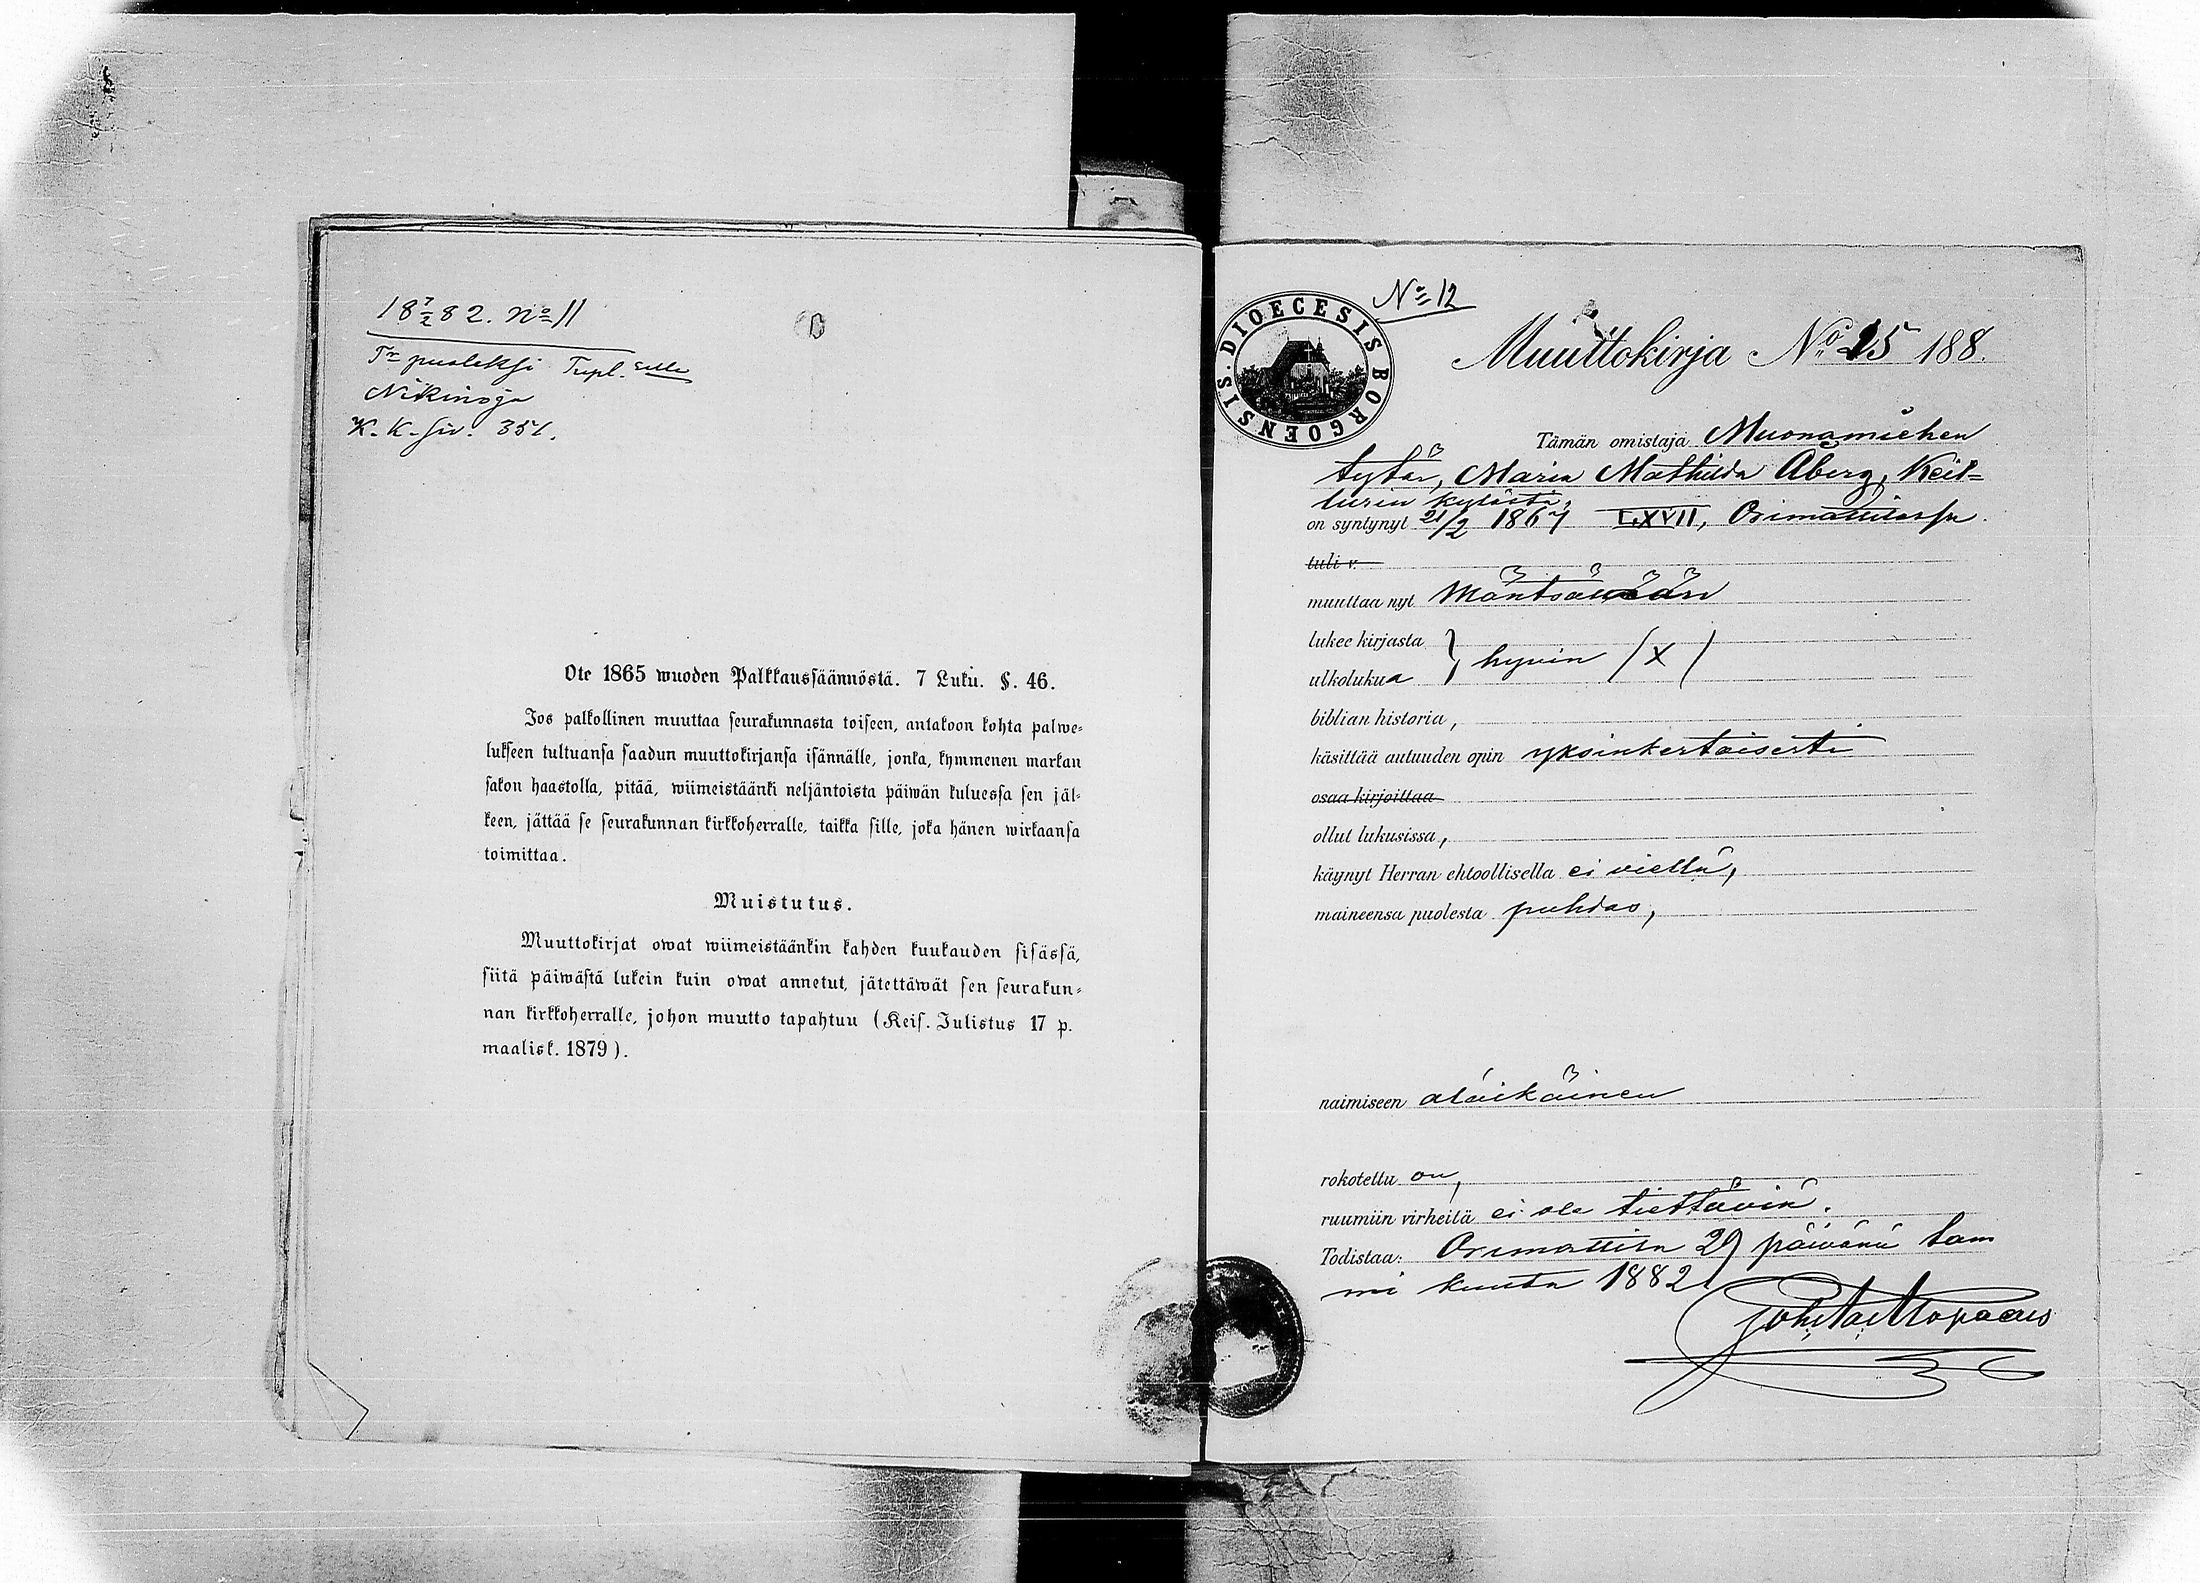 18 7/2 82. No 11
Tr puoleksi Tupl.
Nikinoja
K. K. siv. 351.
Ote 1865 wuoden Palkkaussäännöstä. 7 Luku. §. 46.
Jos palkollinen muuttaa seurakunnasta toiseen, antakoon kohta palwe-
lukseen tultuansa saadun muuttokirjansa isännälle, jonka, kymmenen markan
sakon haastolla, pitää, wiimeistäänki neljäntoista päiwän kuluessa sen jäl-
keen, jättää se seurakunnan kirkkoherralle, taikka sille, joka hänen wirkaansa
toimittaa.
Muistutus.
Muuttokirjat owat wiimeistäänkin kahden kuukauden sisässä,
siitä päiwästä lukein kuin owat annetut, jätettäwät sen seurakun-
nan kirkkoherralle, johon muutto tapahtuu (Keis. Julistus 17 p.
maalisk. 1879).
No 12
DIOECESIS BORGOENSIS.
Muuttokirja No 15 188
Tämän omistaja Muonamiehen
tytär, Maria Mathilda Åberg, Keit-
turin kylästä,
on syntynyt 21/2 1867 LXVII, Orimattilassa.
tuli v.
muuttaa nyt Mäntsälään
lukee kirjasta } hyvin (X)
ulkolukua
biblian historia,
käsittää autuuden opin yksinkertaisesti
osaa kirjoittaa
ollut lukusissa,
käynyt Herran ehtoollisella ei viellä,
maineensa puolesta puhdas,
naimiseen alaikäinen
rokotettu on,
ruumiin virheitä ei ole tiettävia.
Todistaa: Orimattila 29 päivänä tam
mi kuuta 1882